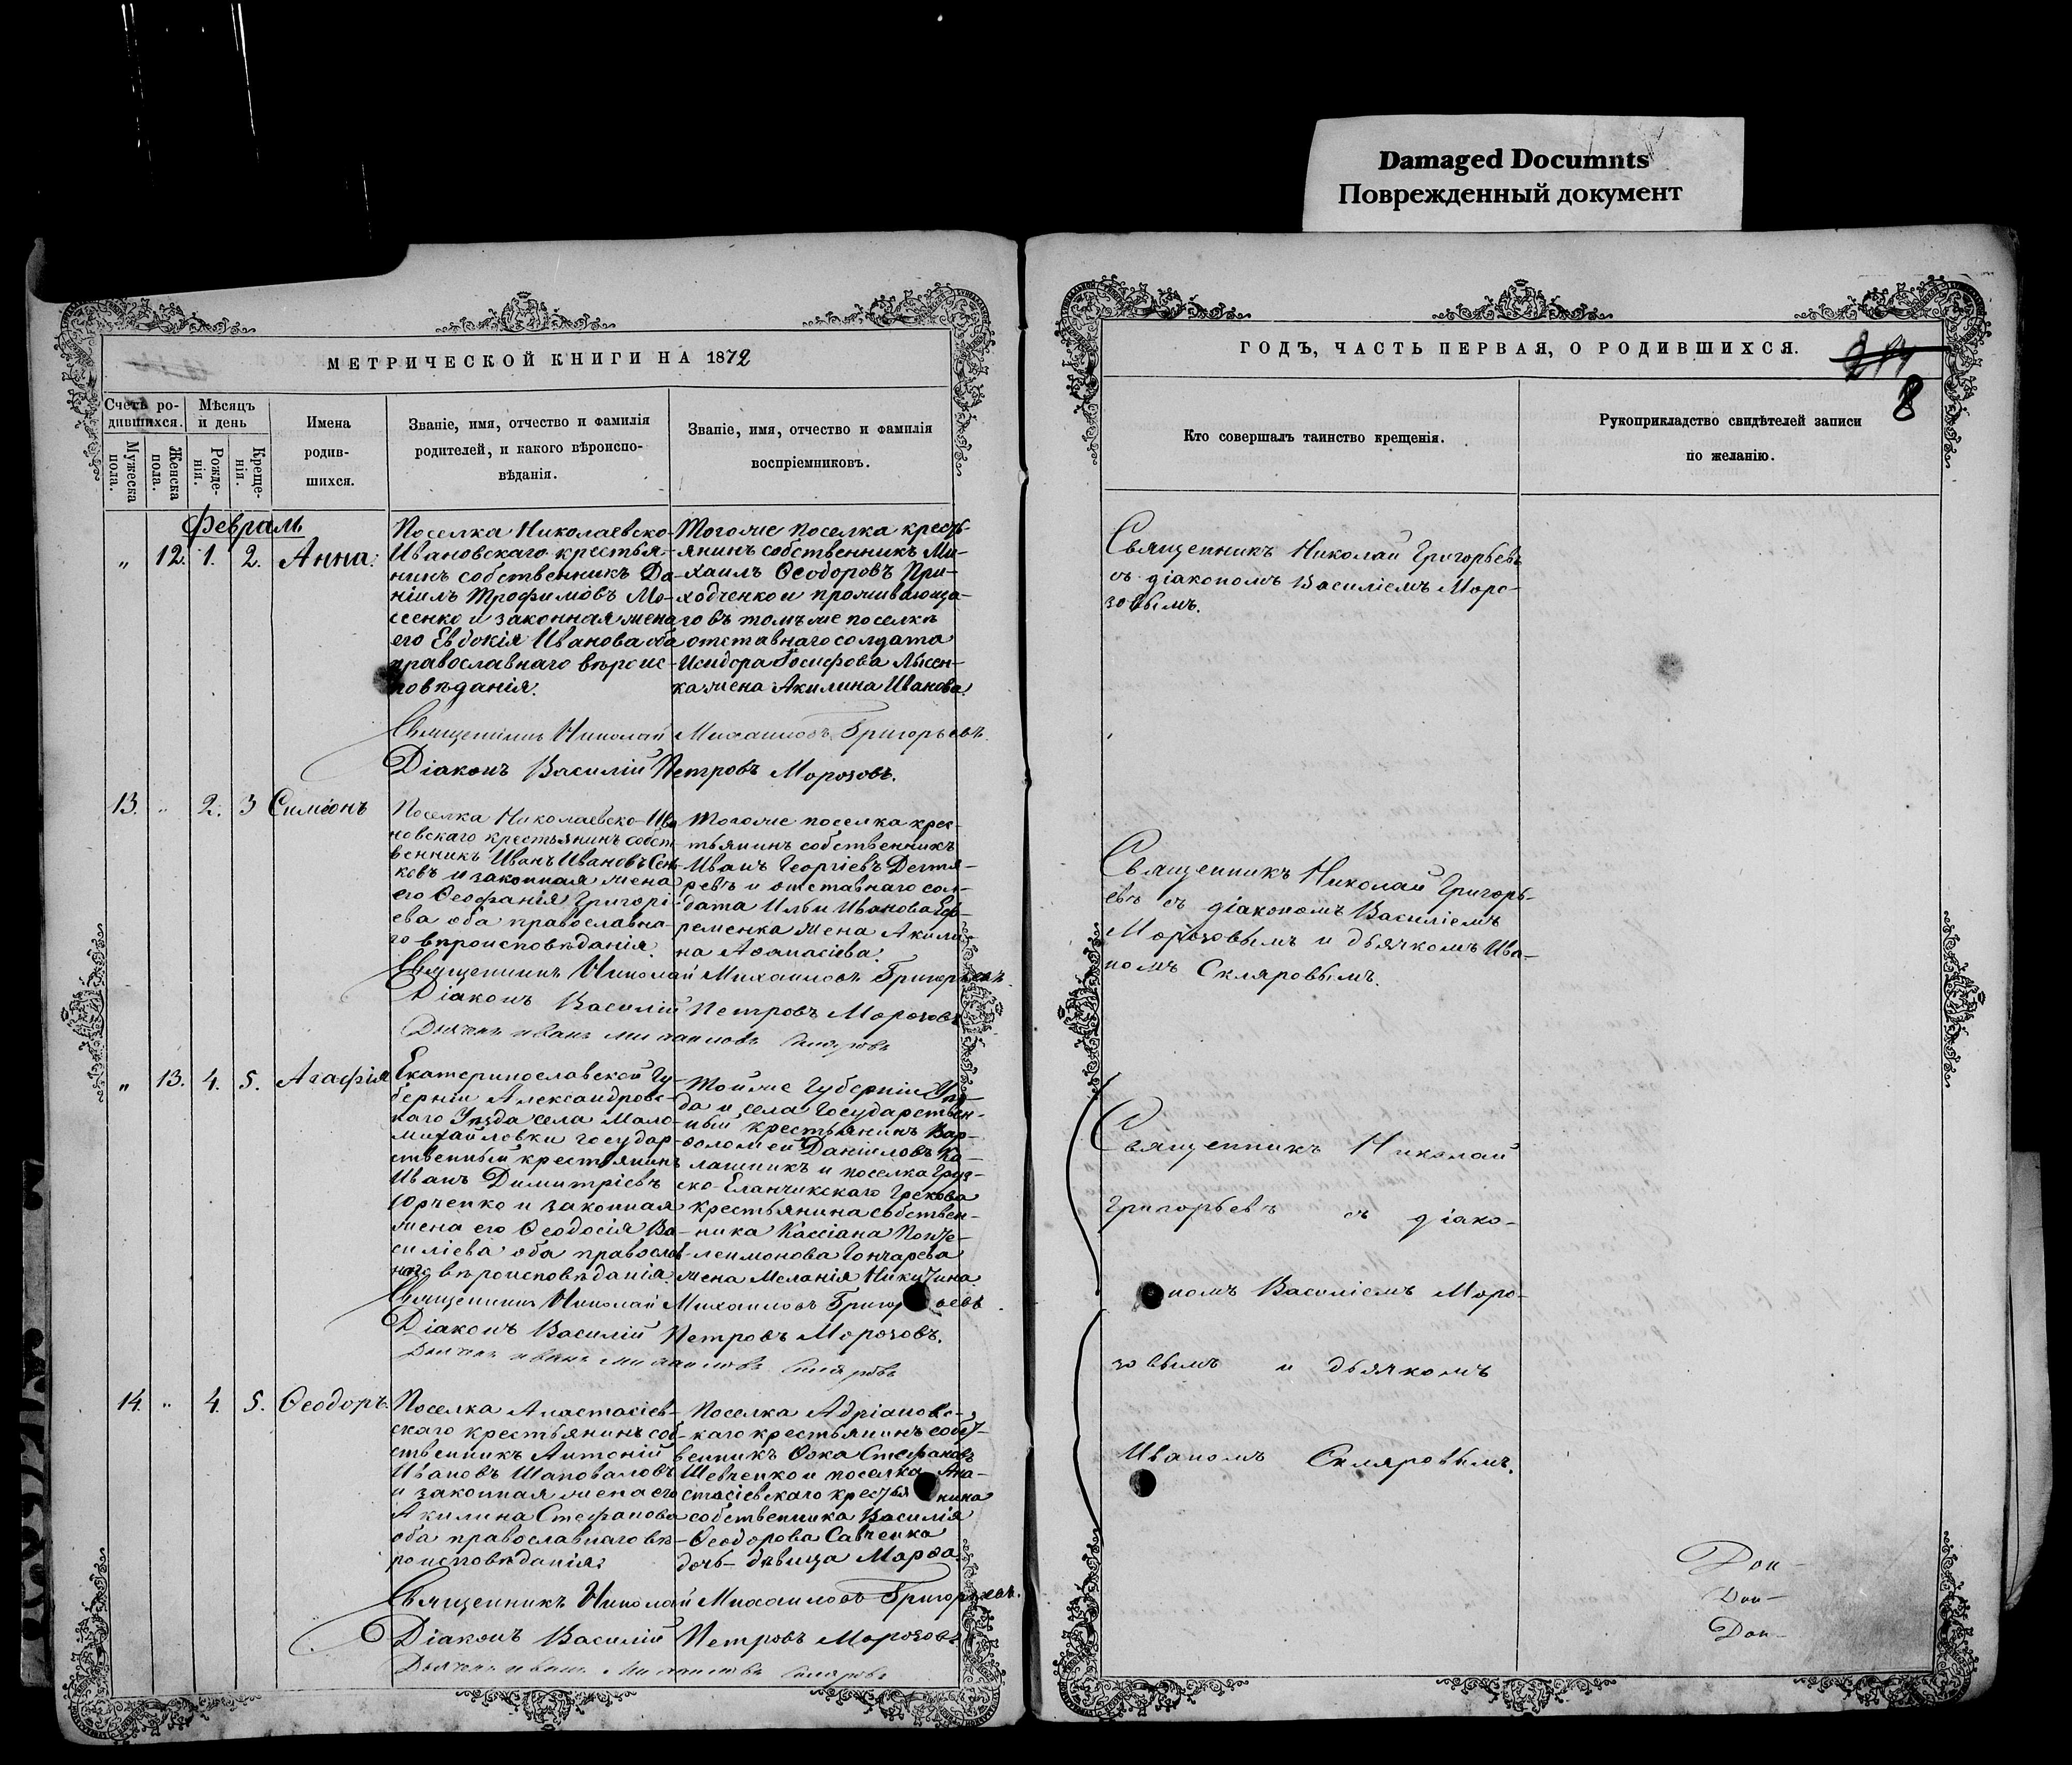 Damaged Documnts
Поврежденный документ
МЕТРИЧЕСКОЙ КНИГИ НА 1872
Счетъ ро-
дившихся.
Мѣсяцъ
и день
Мужеска
пола.
Женска
пола.
Рожде-
нія.
Креще-
нія.
Имена
родив-
шихся.
Званіе, имя, отчество и фамилія
родителей, и какого вѣроиспо-
вѣданія.
Званіе, имя, отчество и фамилія
воспріемниковъ.
Февраль
„ 12. 1. 2. Анна.
Поселка Николаевско-
Ивановскаго крестья-
нинъ собственникъ Да-
ніилъ Трофимовъ Мо-
сеенко и законная жена
его Евдокія Иванова оба
православнаго вѣроис-
повѣданія.
Тогоже поселка кресть-
янинъ собственникъ Ми-
хаилъ Ѳеодоровъ При-
ходченко и проживающа-
го въ томъ же поселкѣ
отставнаго солдата
Исидора Іосифова Лысен-
ка жена Акилина Иванова.
Священникъ Николай Михаиловъ Григорьевъ.
Діаконъ Василій Петровъ Морозовъ.
13. „ 2. 3 Симеонъ
Поселка Николаевско-Ива
новскаго крестьянинъ собст
венникъ Иванъ Ивановъ Сень
ковъ и законная жена
его Ѳеофанія Григорі-
ева оба православна-
го вѣроисповѣданія.
Тогоже поселка крес-
тьянинъ собственникъ
Иванъ Георгіевъ Дегтя-
ревъ и отставнаго сол-
дата Ильи Иванова Ев-
ременка жена Акили-
на Аѳанасіева.
Священникъ Николай Михаиловъ Григорьевъ.
Діаконъ Василій Петровъ Морозовъ
Дьячекъ Иванъ Михаиловъ Скляровъ
„ 13. 4. 5. Агафія
Екатеринославской Гу-
берніи Александровс-
каго Уѣзда села Мало-
михайловки государ-
ственный крестьянинъ
Иванъ Димитріевъ
Юрченко и законная
жена его Ѳеодосія Ва-
силіева оба православ-
наго вѣроисповѣданія.
Тойже Губерніи Уѣз-
да и села Государствен-
ный крестьянинъ Вар-
ѳоломей Даниловъ Ка-
лашникъ и поселка Груз-
ско-Еланчикскаго Грекова
крестьянина собствен-
ника Кассіана Панте-
леимонова Гончарева
жена Меланія Никитина.
Священникъ Николай Михаиловъ Григорьевъ.
Діаконъ Василій Петровъ Морозовъ.
Дьячекъ Иванъ Михаиловъ Скляровъ
14. „ 4. 5. Ѳеодоръ.
Поселка Анастасіев-
скаго крестьянинъ соб-
ственникъ Антоній
Ивановъ Шаповаловъ
и законная жена его
Акилина Стефанова
оба православнаго вѣ-
роисповѣданія.
Поселка Адріановс-
каго крестьянинъ собст-
венникъ Ѳока Стефановъ
Шевченко и поселка Ана-
стасіевскаго крестьянина
собственника Василія
Ѳеодорова Савченка
дочь-дѣвица Марѳа.
Священникъ Николай Михаиловъ Григорьевъ.
Діаконъ Василій Петровъ Морозовъ.
Дьячекъ Иванъ Михаиловъ Скляровъ
ГОДЪ, ЧАСТЬ ПЕРВАЯ, О РОДИВШИХСЯ.
8
Кто совершалъ таинство крещенія.
Рукоприкладство свидѣтелей записи
по желанію.
Священникъ Николай Григорьевъ
съ діакономъ Василіемъ Моро-
зовымъ.
Священникъ Николай Григорь-
евъ съ діакономъ Василіемъ
Морозовымъ и дьячкомъ Ива-
номъ Скляровымъ.
Священникъ Николай
Григорьевъ съ діако-
номъ Василіемъ Моро-
зовымъ и дьячкомъ
Иваномъ Скляровымъ.
Дон-
Дон-
Дон-